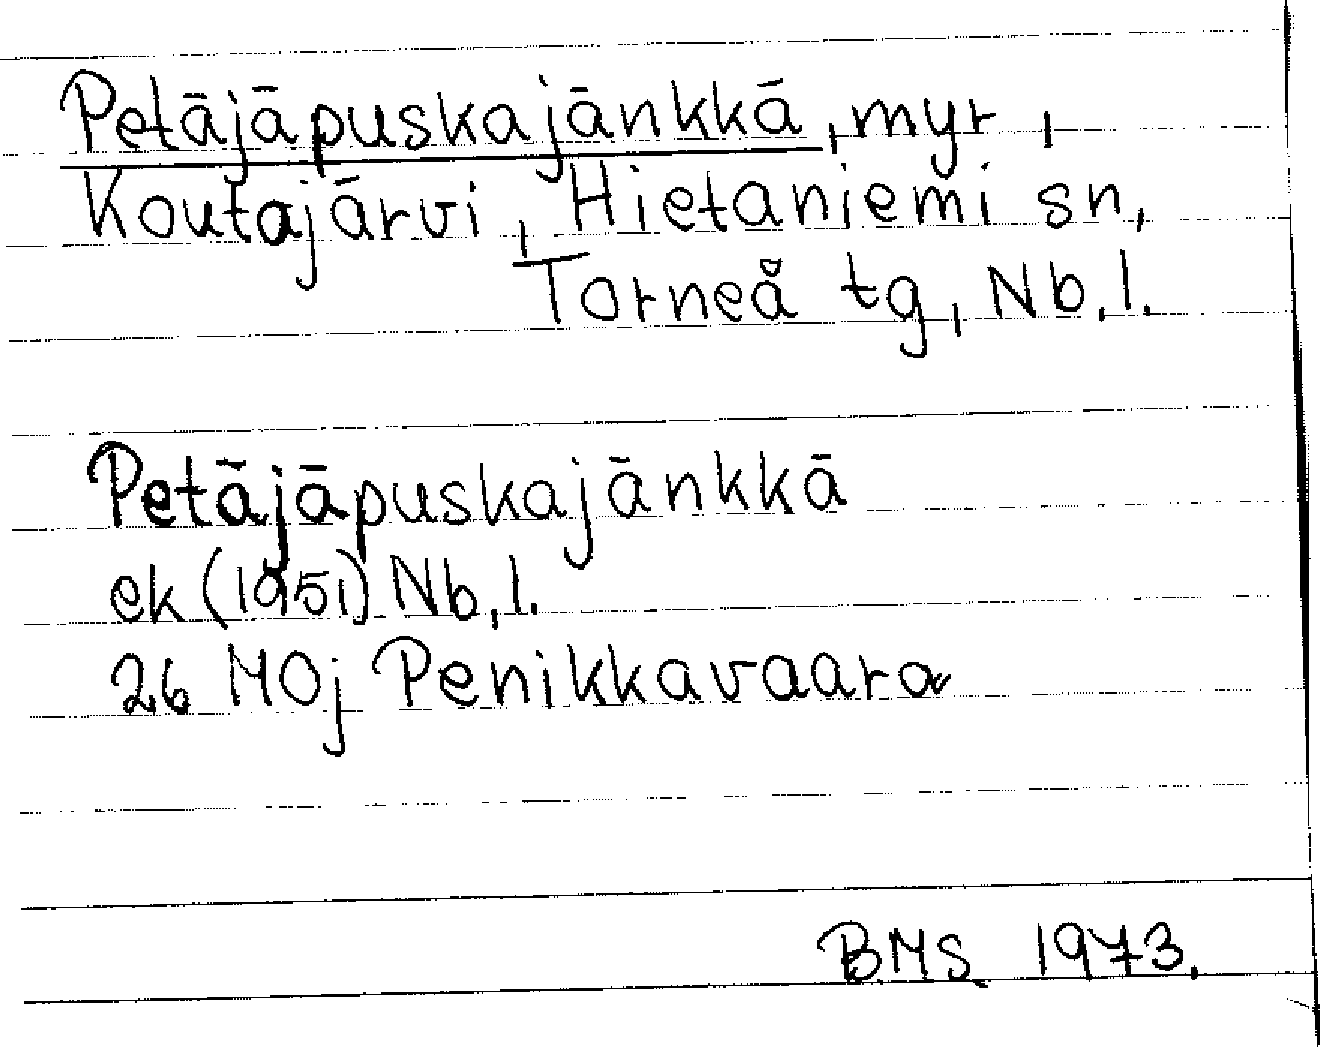 Petäjäpuskajänkkä, myr,
Koutajärvi, Hietaniemi sn,
Torneå tg, Nb.l.
Petäjäpuskajänkkä
ek (1951) Nb.l.
26 MOj Penikkavaara
BMS 1973.